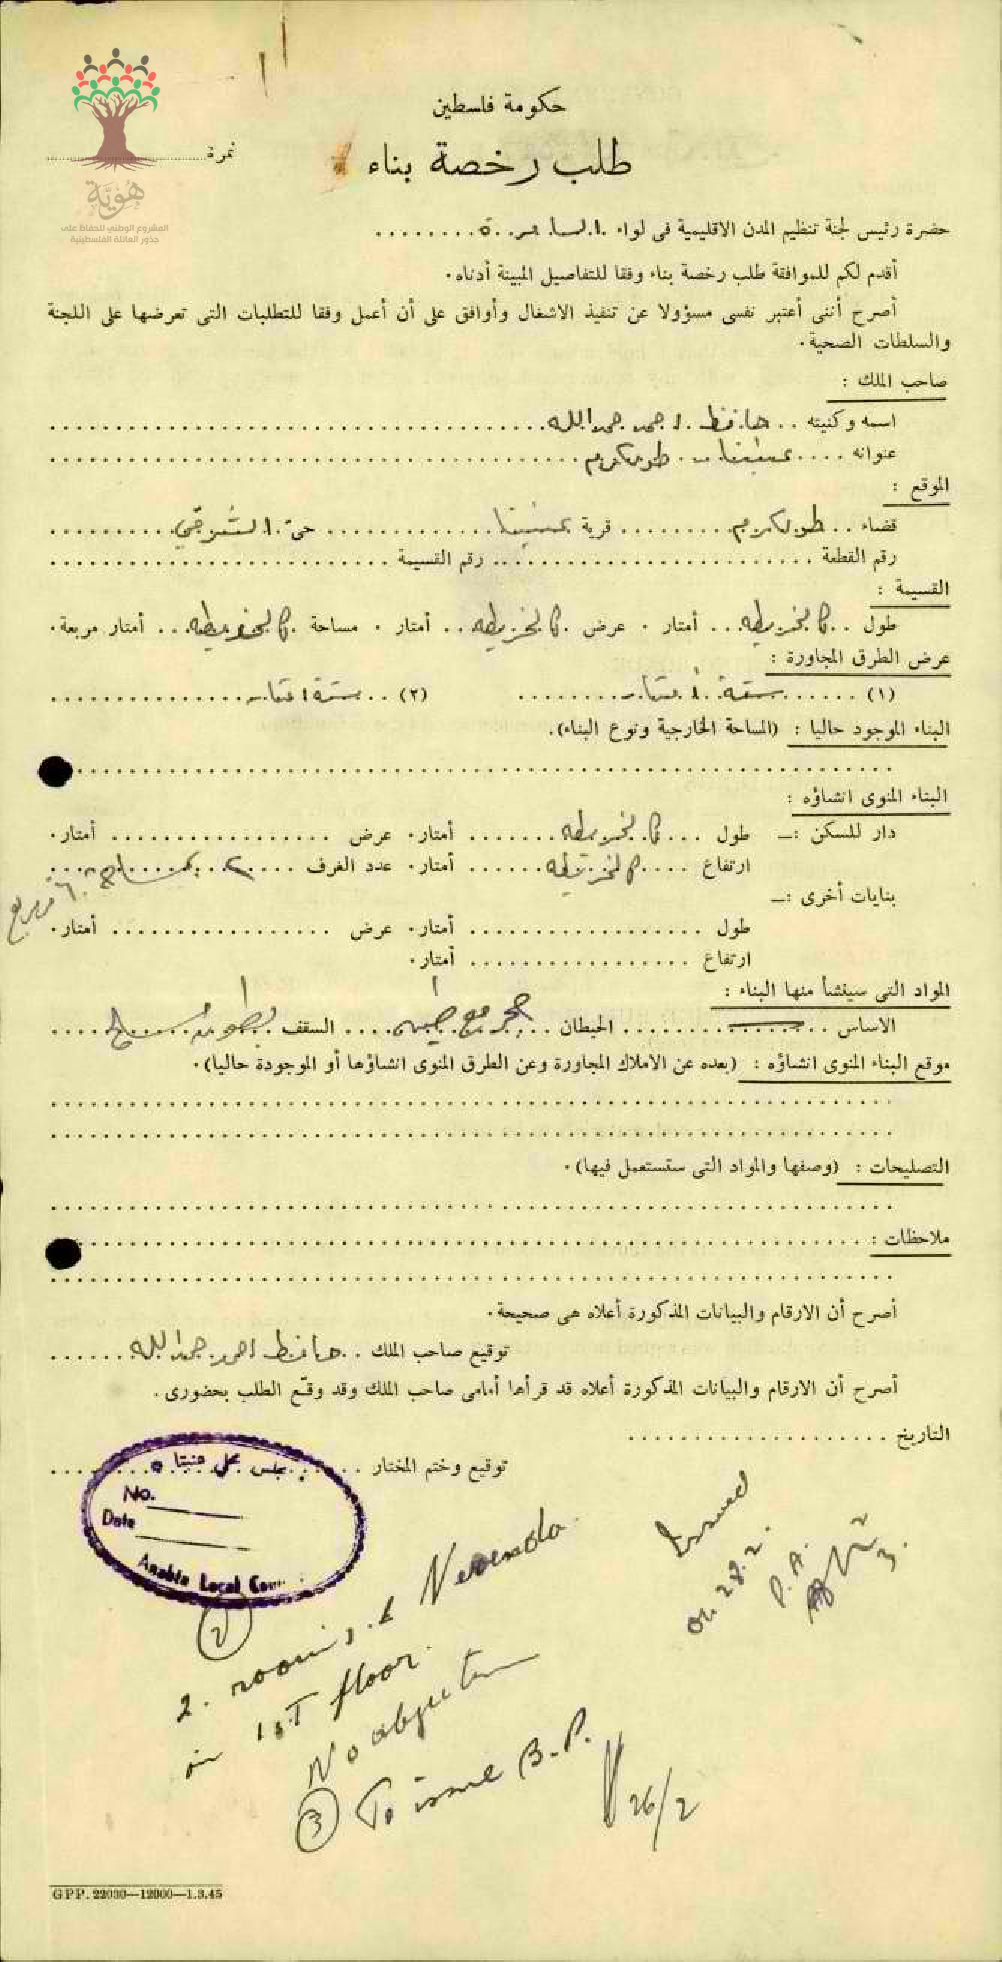 حكومة فلسطين
طلب رخصة بناء
نمرة
هُوِيَّة
المشروع الوطني للحفاظ على
جذور العائلة الفلسطينية
حضرة رئيس لجنة تنظيم المدن الاقليمية فى لواء السامرة
أقدم لكم للموافقة طلب رخصة بناء وفقا للتفاصيل المبينة أدناه.
أصرح أننى أعتبر نفسى مسؤولا عن تنفيذ الاشغال وأوافق على أن أعمل وفقا للمتطلبات التى تعرضها على اللجنة
والسلطات الصحية.
صاحب الملك :
اسمه وكنيته حافظ احمد حمدالله
عنوانه عنبتا - طولكرم
الموقع :
قضاء طولكرم قرية عنبتا حىّ الشرقي
رقم القطعة رقم القسيمة
القسيمة :
طول كالخريطه أمتار. عرض كالخريطه أمتار. مساحة كالخريطه أمتار مربعة.
عرض الطرق المجاورة :
(١) ستة أمتار (٢) ستة امتار
البناء الموجود حاليا : (المساحة الخارجية ونوع البناء).
البناء المنوى انشاؤه :
دار للسكن :— طول كالخريطه أمتار. عرض أمتار.
ارتفاع كالخريطه أمتار. عدد الغرف ٢
بنايات أخرى :—
طول أمتار. عرض أمتار.
ارتفاع أمتار.
المواد التى سينشأ منها البناء :
الاساس الحيطان حجر مع السقف
موقع البناء المنوى انشاؤه : (بعده عن الاملاك المجاورة وعن الطرق المنوى انشاؤها أو الموجودة حاليا).
التصليحات : (وصفها والمواد التى ستستعمل فيها).
ملاحظات :
أصرح أن الارقام والبيانات المذكورة أعلاه هى صحيحة.
توقيع صاحب الملك حافظ احمد حمدالله
أصرح أن الارقام والبيانات المذكورة أعلاه قد قرأها أمامى صاحب الملك وقد وقّع الطلب بحضورى.
التاريخ
توقيع وختم المختار
مجلس محلي عنبتا
No.
Date
Anabta Local Coun
Issued
on 28.2.
P.A.
②
2. rooms & Veranda
in 1st floor.
No objection
③ To issue B.P.
26/2
GPP. 22030—12000—1.3.45